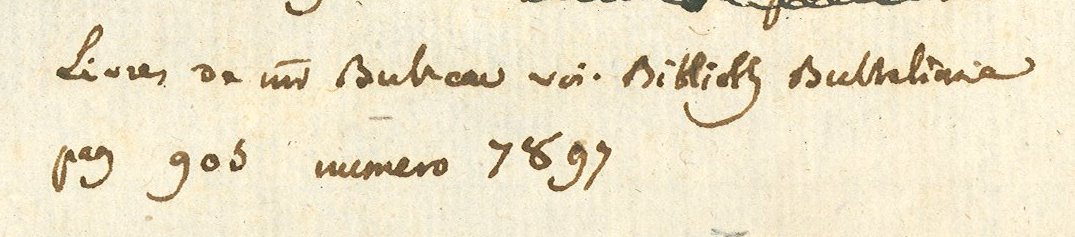 Livres de mr Bulteau voi. Biblioth Bulteliane
pag 905 numero 7897